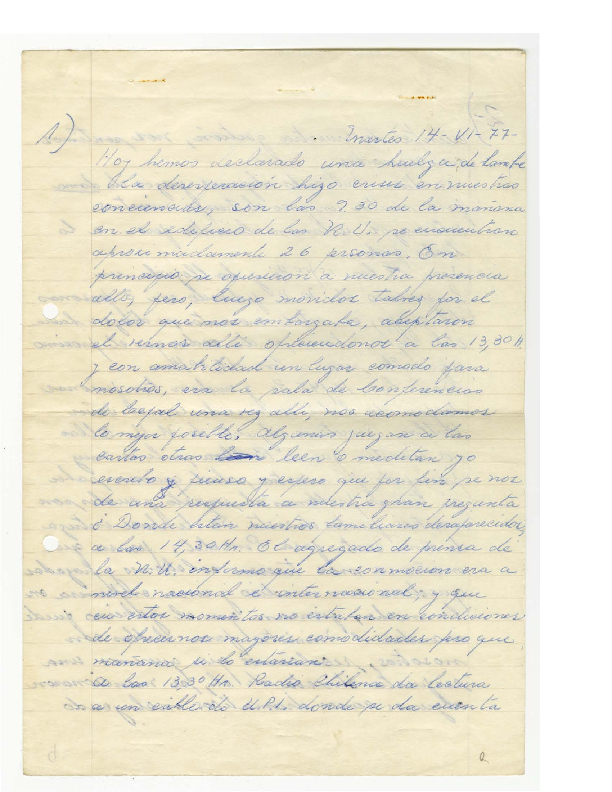 1)
Martes 14-VI-77-
Hoy hemos declarado una huelga de hambre
la deseperación hizo crisis en nuestras
conciencias, son las 9.30 de la mañana
en el edificio de las N.U. se encuentran
aproximadamente 26 personas. En
principio se opusieron a nuestra presencia
allí, pero, luego movidos talvez por el
dolor que nos embargaba, aceptaron
el vernos allí ofreciendonos a las 13,30 H.
y con amabilidad un lugar comodo para
nosotros, era la sala de Conferencias
de Cepal una vez allí, nos acomodamos
lo mejor posible, algunas juegan a las
cartas otras leen o meditan yo
escribo y pienso y espero que por fin se nos
de una respuesta a nuestra gran pregunta
¿ Donde estan nuestros familiares desaparecidos,
a las 14,30 Hr. El agregado de prensa de
la N.U. informo que la conmoción era a
nivel nacional e internacional, y que
en estos momentos no estaban en condiciones
de ofrecernos mayores comodidades pero que
mañana si lo estarian.
a las 13,30 Hr. Radio Chilena da lectura
a un cable de U.P.I. donde se da cuenta